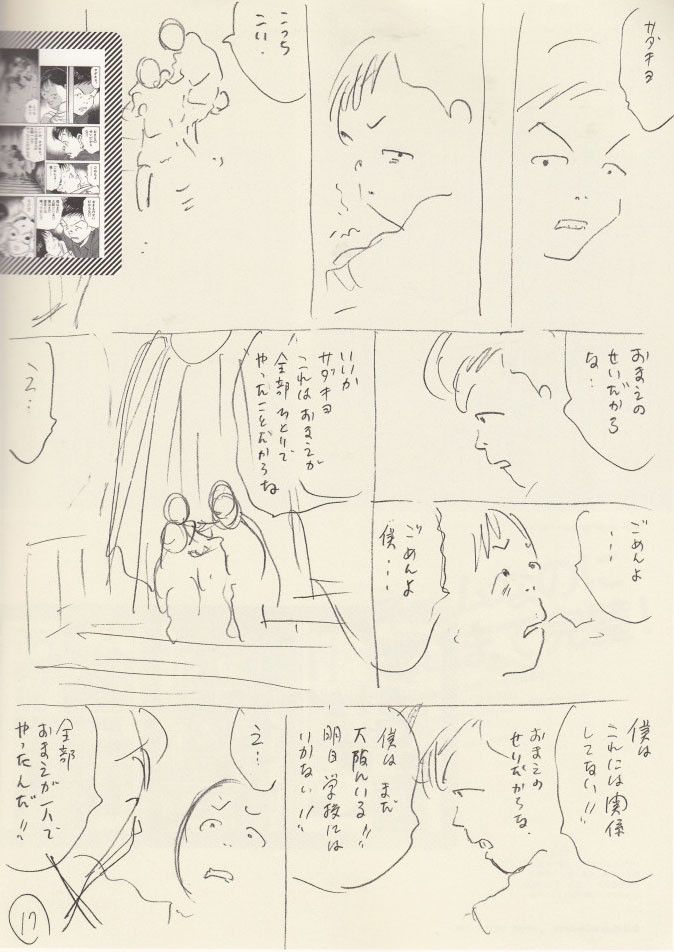 サダキヨ
こっち
こい.
おまえの
せいだから
な…
いいか
サダキヨ
これはおまえが
全部ひとりで
やったことだからな
え…
ごめんよ
…
ごめんよ
僕…
僕は
これには関係
してない!!
おまえの
せいだからな.
僕はまだ
大阪にいる!!
明日学校には
いかない!!
え…
全部
おまえが一人で
やったんだ!!
17